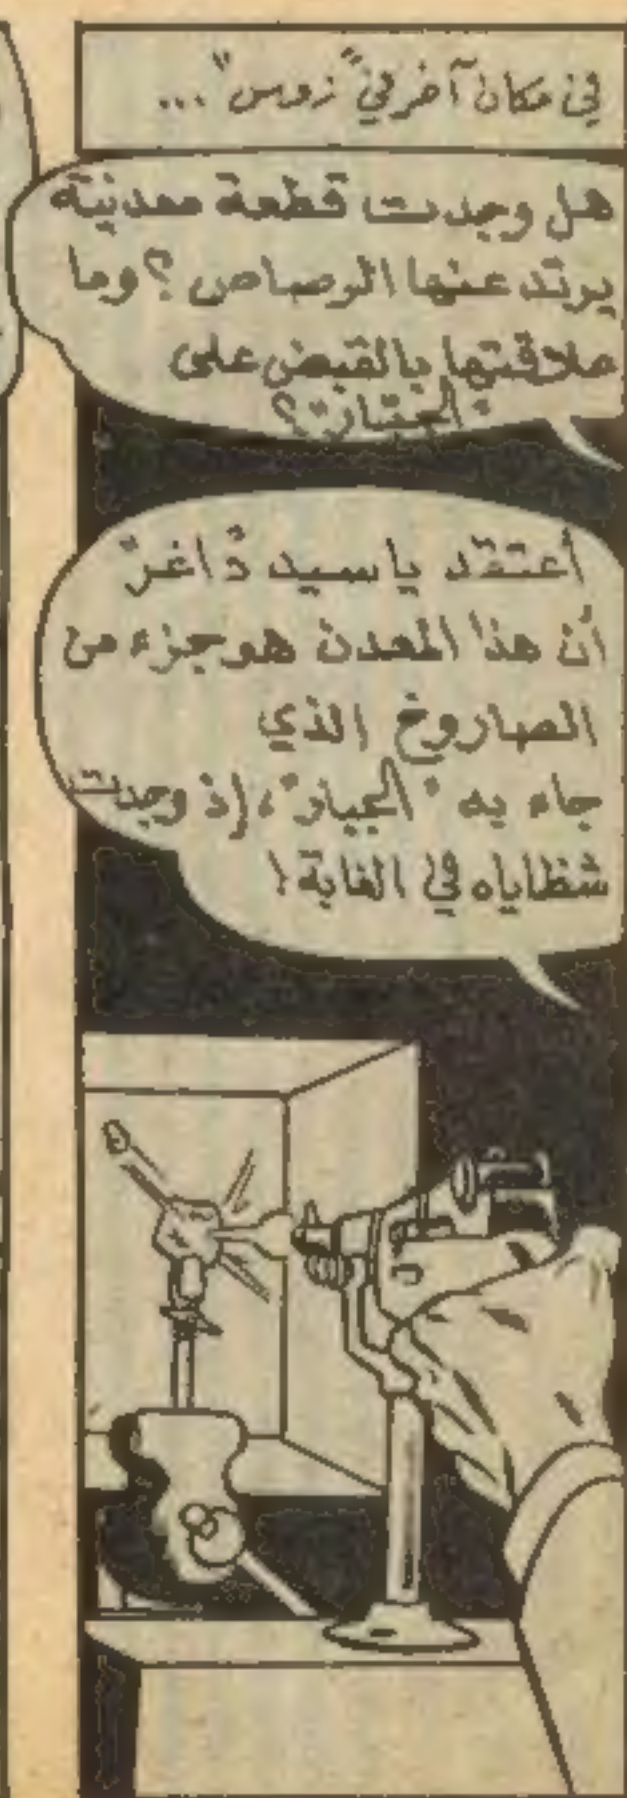 في مكان آخر في "زوس"...
هل وجدت قطعة معدنية
يرتد عنها الرصاص؟ وما
علاقتها بالقبض على
"الجبار"؟
أعتقد يا سيد داغر
أن هذا المعدن هو جزء من
الصاروخ الذي
جاء به "الجبار"، إذ وجدت
شظاياه في الغابة!